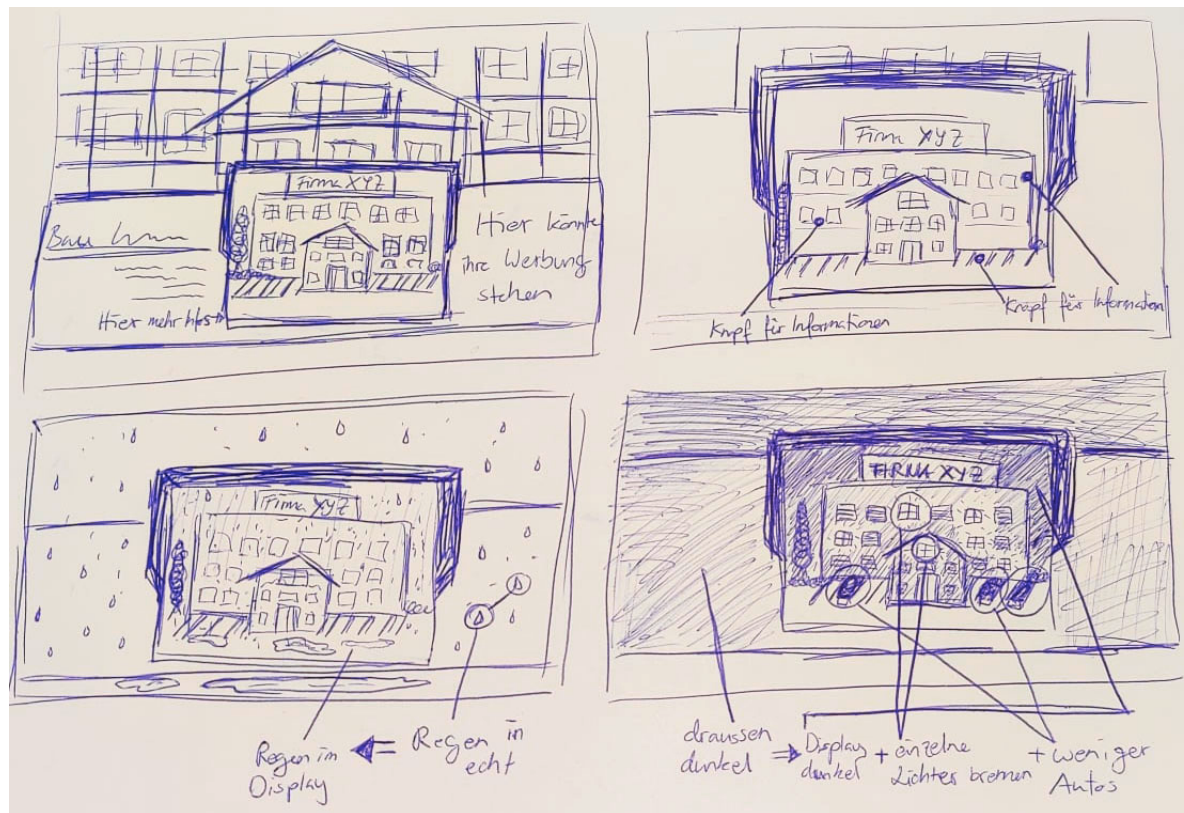 Firma XYZ
Bau
Hier könnte
ihre Werbung
stehen
Hier mehr Infos
Firma XYZ
Knopf für Informationen
Knopf für Information
Firma XYZ
Regen im
Display
Regen in
echt
FIRMA XYZ
draussen
dunkel
Display
dunkel
+ einzelne
Lichter brennen
+ weniger
Autos